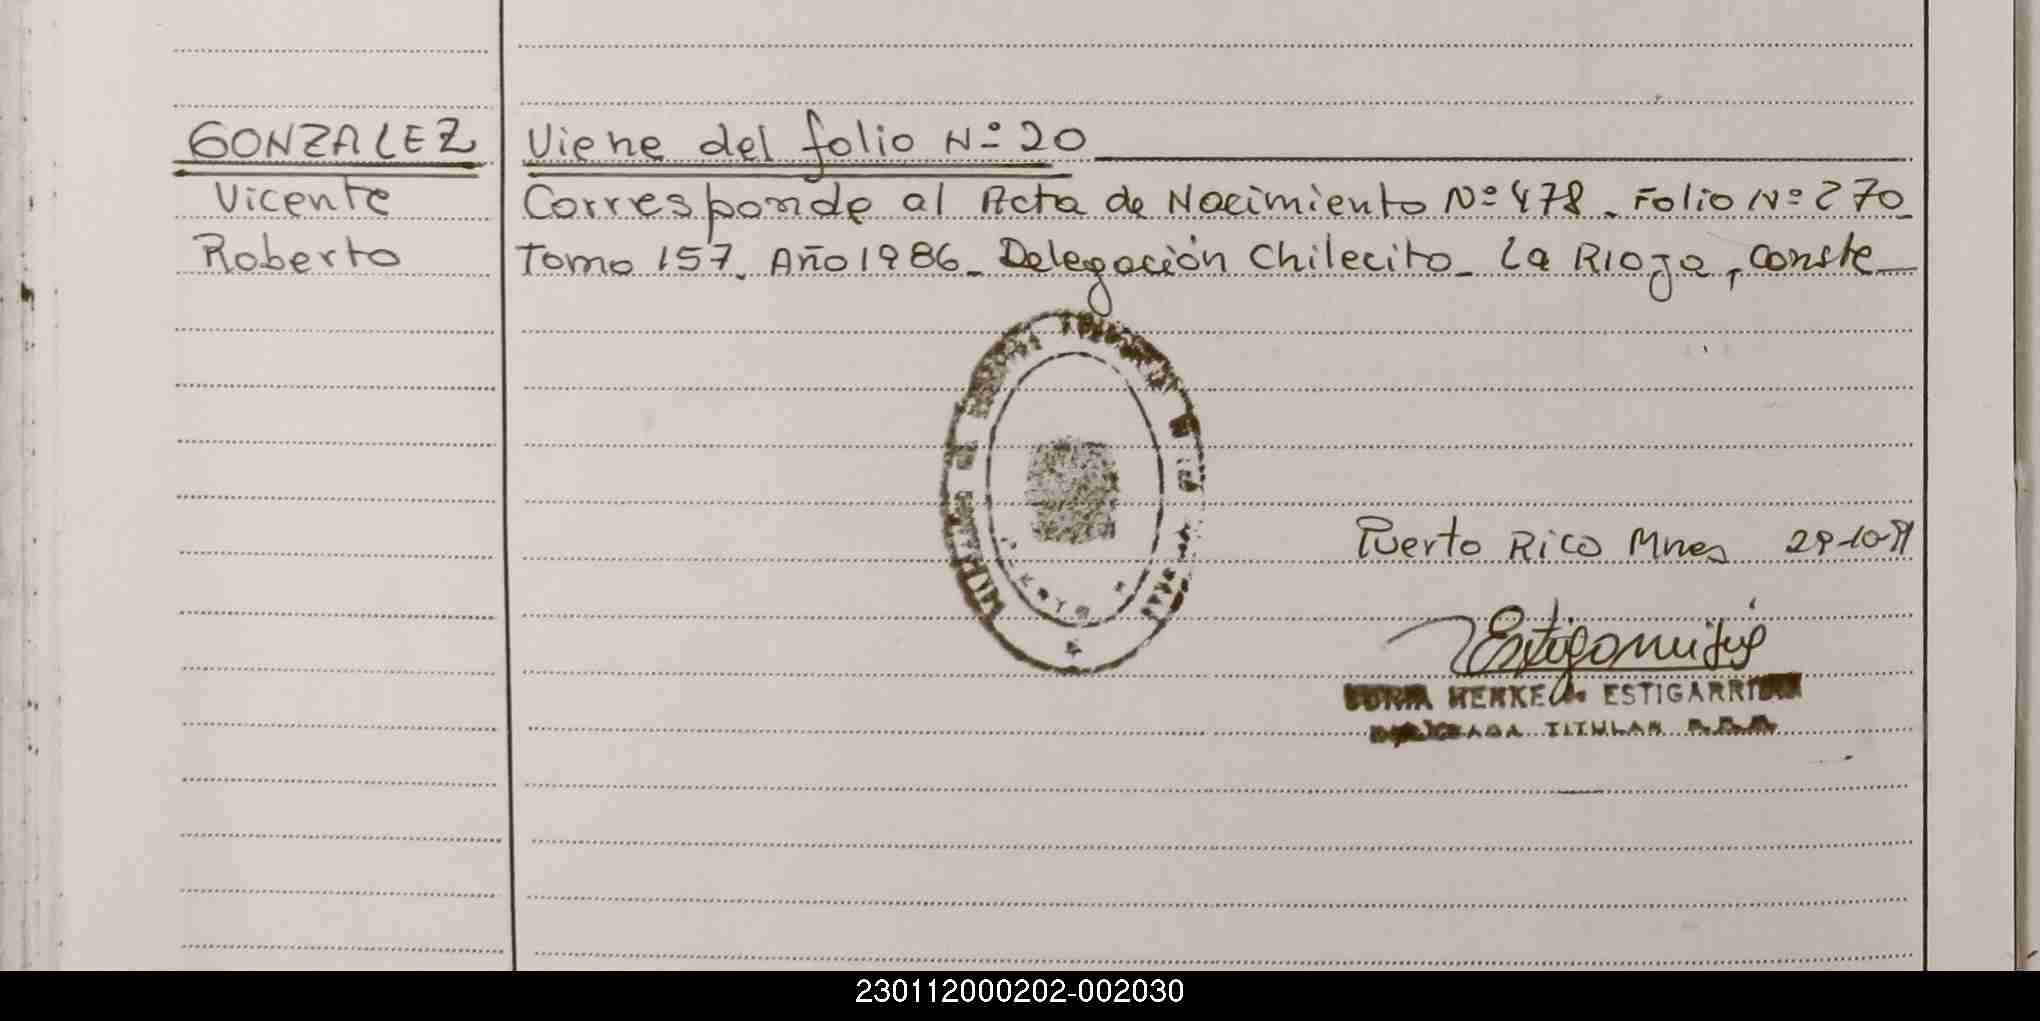 GONZALEZ
Vicente
Roberto
Viene del folio Nº 20
Corresponde al Acta de Nacimiento Nº 478. Folio Nº 270
Tomo 157. Año 1986. Delegación Chilecito. La Rioja, conste
Puerto Rico Mnes 29-10-91
HENKE ESTIGARRIBIA
TITULAR
230112000202-002030